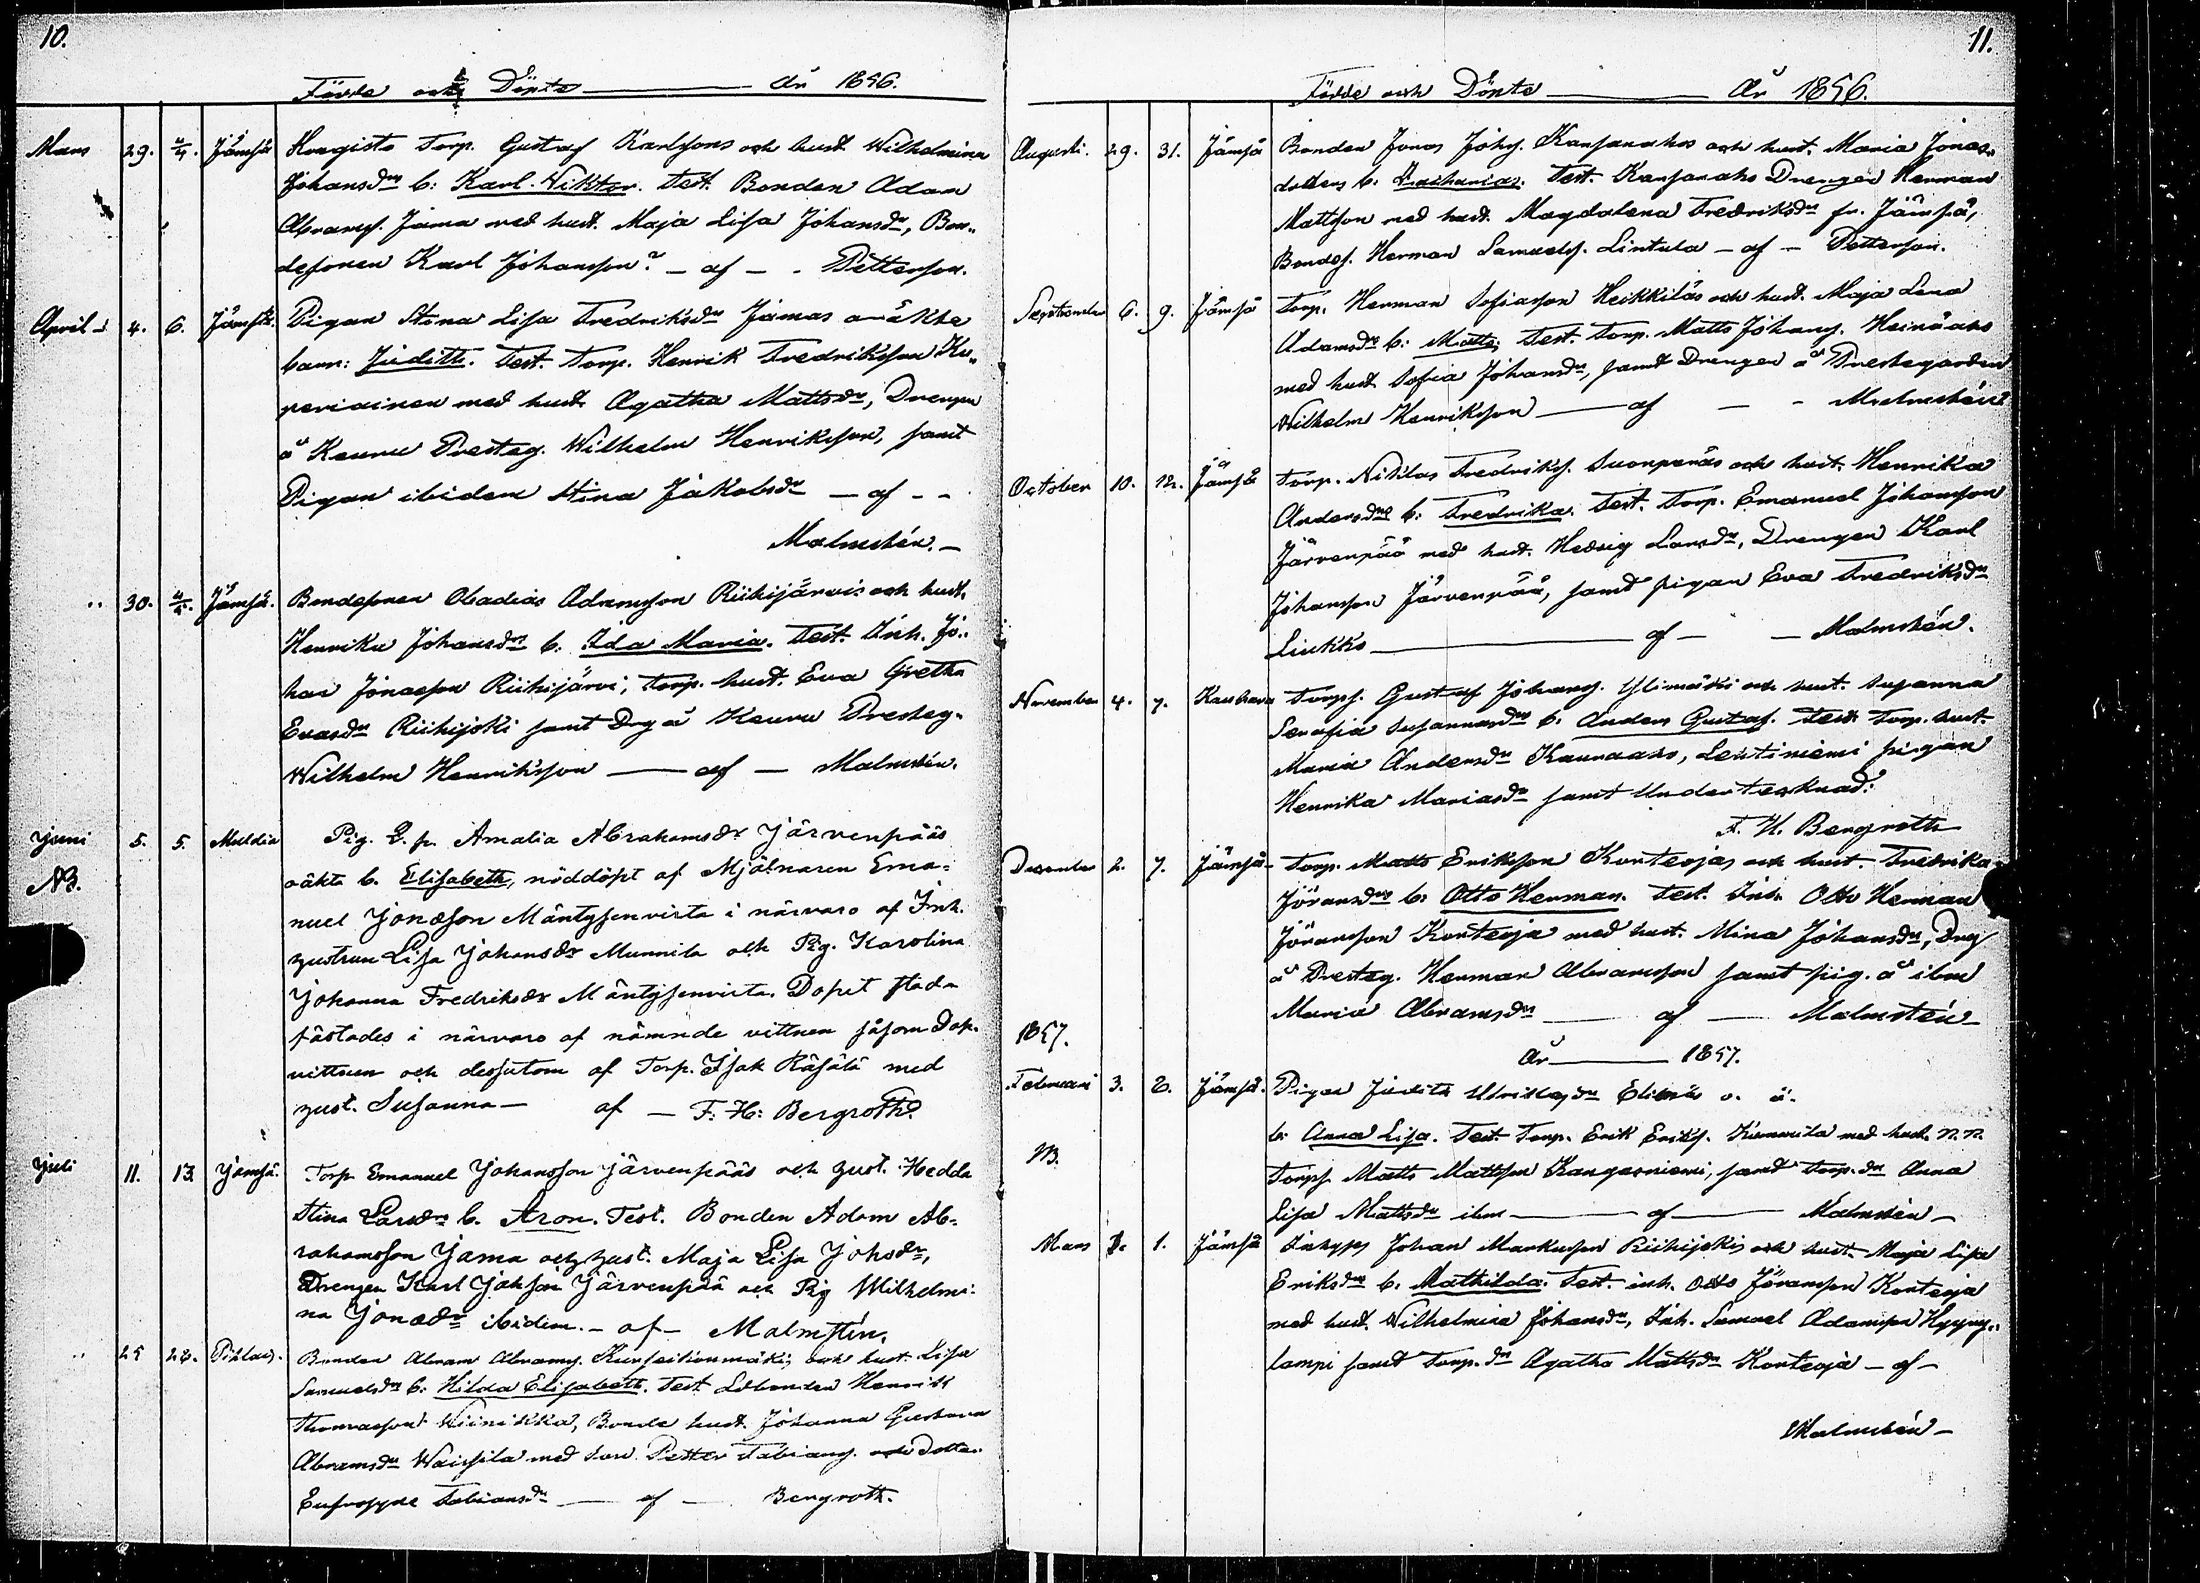 10.
Födde och Döpte — År 1856.
Mars 29. 2/4. Jämsä Torp. Gustaf Karlssons och hust. Wilhelmina
Johansdrs b: Karl Wiktor. Test. Bonden Adam
Abramss. Jama med hust. Maja Lisa Johansdr, Bon-
desonen Karl Johansson — af — Pettersson.
April 4. 6. Jämsä. Pigan Stina Lisa Fredriksdrs Jamas oäkta
barn: Judith. Test. Torp. Henrik Fredriksson
med hust. Agatha Mattsdr, Drengen
å Keuru Presteg. Wilhelm Henriksson, samt
Pigan ibidem Stina Jakobsdr — af —
Malmstén. —
" 30. Jämsä. Bondesonen Obadias Adamsson Riihijärvis och hust.
Henrika Johansdrs b. Ida Maria. Test. Inh. Jo-
han Jonasson Riihijärvi, Torp. hust. Eva Gretha
Evasdr Riihijoki samt Drg å Keuru Presteg.
Wilhelm Henriksson — af — Malmstén.
Juni 5. 5. Multia Pig. Amalia Abrahamsdr Järvenpääs
NB. oäkta b. Elisabeth, nöddöpt af Mjölnaren Ema-
nuel Jonasson Mäntysenvirta i närvaro af Inh.
hustrun Lisa Johansdr Munnila och Pig. Karolina
Johanna Fredriksdr Mäntysenvirta. Dopet stad-
fästades i närvaro af nämnde vittnen såsom Dop-
vittnen och dessutom af Torp. Isak Räsälä med
hust. Susanna — af — F. H: Bergroth.
Juli 11. 13. Jämsä. Torp. Emanuel Johansson Järvenpääs och hust. Hedda
Stina Larsdrs b. Aron. Test. Bonden Adam Ab-
rahamsson Jama och hust. Maja Lisa Johsdr,
Drengen Karl Johsson Järvenpää och Pig Wilhelmi-
na Jonaedr ibidem. — af — Malmstén.
" 25 26. Bonden Abram Abramss. och hust. Lisa
Samuelsdrs b: Hilda Elisabeth. Test. Henrik
Thomasson Wiinikka, Bonde hust. Johanna Gustava
Abramsdr Waissila med Son Petter Fabianss. och Dotter
Eufrosyne Fabiansdr — af — Bergroth.
11.
Födde och Döpte — År 1856.
Augusti. 29. 31. Jämsä Bonden Jonas Johss. Kansanahos och hust. Maria Jonas-
dotters b. Zacharias. Test. Kansanaho Drengen Herman
Mattsson med hust. Magdalena Fredriksdr fr. Jämsä,
Bondes. Herman Samuelss. Lintula — af — Pettersson.
September 6. 9. Jämsä Torp. Herman Sofiasson Heikkiläs och hust. Maja Lena
Adamsdrs b: Matts. Test. Torp. Matts Johanss. Heinäaho
med hust. Sofia Johansdr, samt Drengen å Prestegården
Wilhelm Henriksson — af — Malmstén
October 10. 12. Jämsä Torp. Niklas Fredrikss. Suonperäs och hust. Henrika
Andersdrs b: Fredrika. Test. Torp. Emanuel Johansson
Järvenpää med hust. Hedvig Larsdr, Drengen Karl
Johansson Järvenpää, samt pigan Eva Fredriksdr
Liukko — af — Malmstén.
November 4. 7. Torps. Gustaf Johanss. Ylimäki och hust. Susanna
Serafia Susannasdrs b. Anders Gustaf. Test. Torp. hust.
Maria Andersdr Kauraaho, Lehtiniemi pigan
Henrika Mariasdr samt Undertecknad:
F. H. Bergroth
December 2. 7. Jämsä Torp. Matts Eriksson Korteojas och hust. Fredrika
Göransdrs b. Otto Herman. Test. Inh. Otto Herman
Göransson Korteoja med hust. Mina Johansdr, Drg
å Presteg. Herman Abramsson samt pig. å ibm
Maria Abramsdr — af — Malmstén —
1857.
År — 1857.
Februari 3. 8. Jämsä. Pigan Judith Ulriksdr o. ä.
b: Anna Lisa. Test. Torp. Erik Erikss. Kummila med hust. N.N.
NB. Torps. Matts Mattsson Kangasniemi, samt Torp.dr Anna
Lisa Mattsdr ibm — af — Malmstén —
Mars 1. 1. Jämsä Inhyss Johan Markusson Riihijokis och hust. Maja Lisa
Eriksdrs b. Mathilda. Test. inh. Otto Göransson Korteoja
med hust. Wilhelmina Johansdr, Inh. Samuel Adamsson Hyyry-
lampi samt Torp.dr Agatha Mattsdr Korteoja — af —
Malmstén —